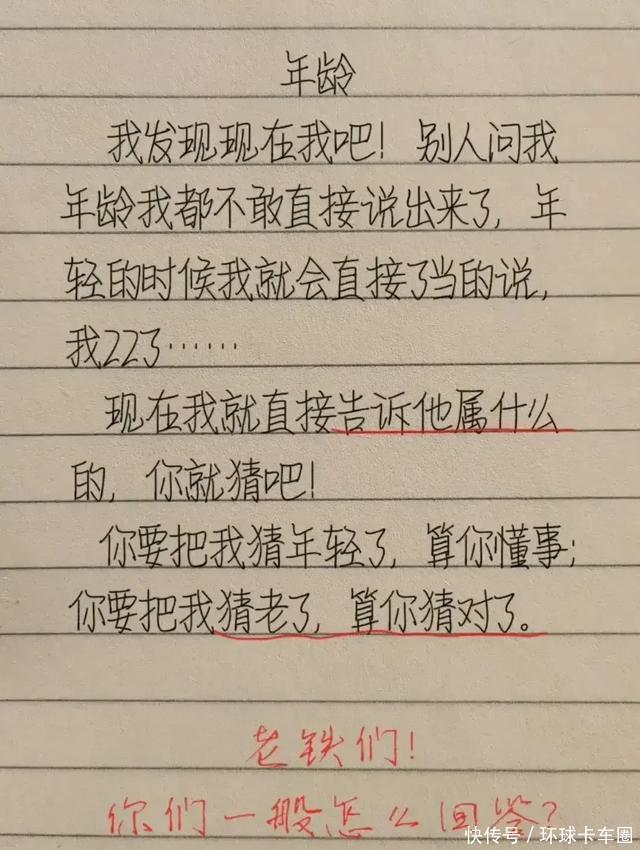 年龄
我发现现在我吧！别人问我
年龄我都不敢直接说出来了，年
轻的时候我就会直接了当的说，
我22了……
现在我就直接告诉他属什么
的，你就猜吧！
你要把我猜年轻了，算你懂事；
你要把我猜老了，算你猜对了。
老铁们！
你们一般怎么回答？
快传号／环球卡车圈